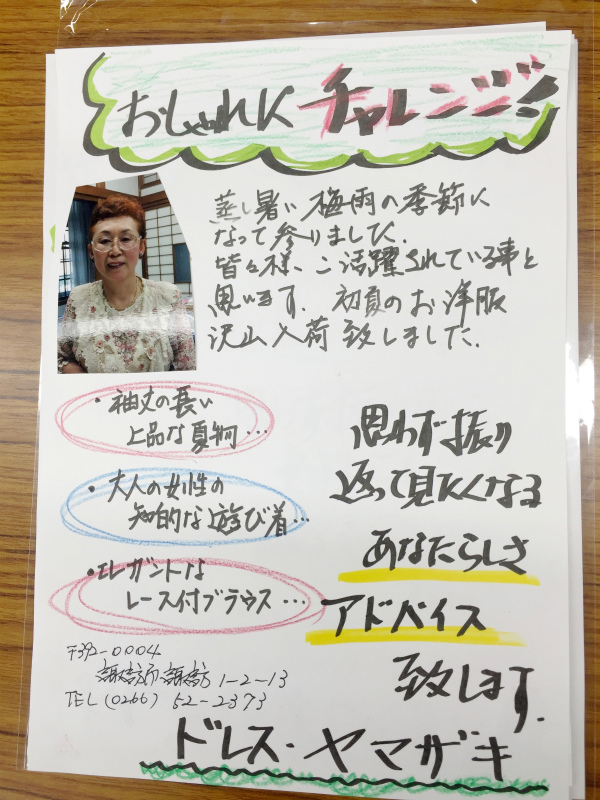 おしゃれに チャレンジ!!
蒸し暑い梅雨の季節に
なって参りました.
皆々様、ご活躍されている事と
思います. 初夏のお洋服
沢山入荷致しました.
・袖丈の長い
上品な夏物…
・大人の女性の
知的な遊び着…
・エレガントな
レース付ブラウス…
思わず振り
返って見たくなる
あなたらしさ
アドバイス
致します.
〒392-0004
諏訪市諏訪1-2-13
TEL(0266) 52-2373
ドレス・ヤマザキ